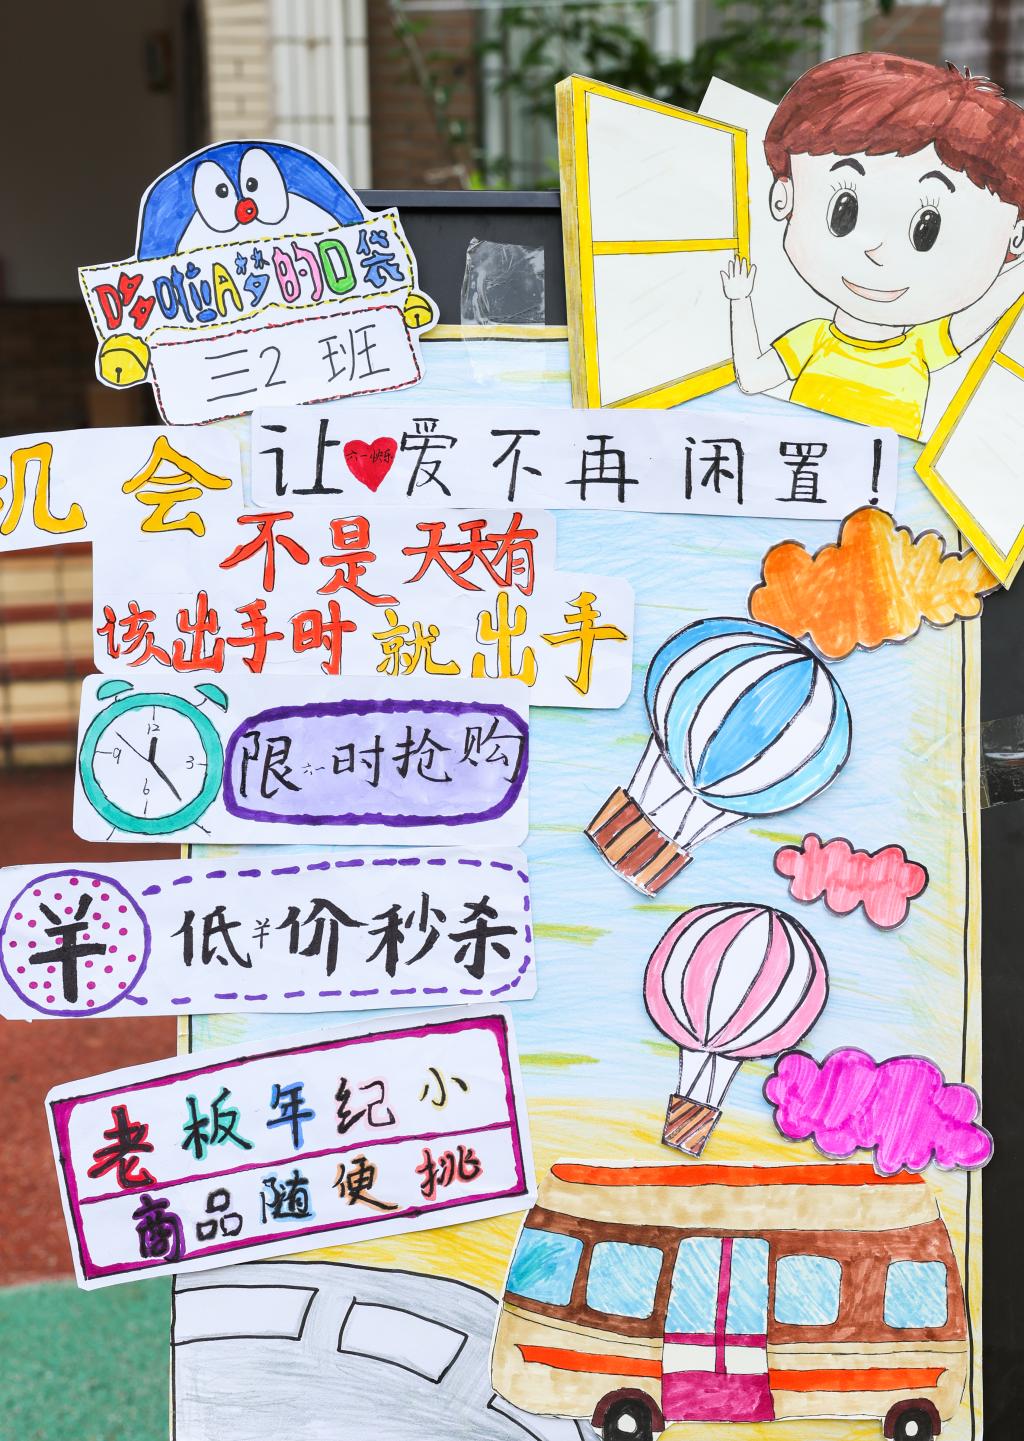 哆啦A梦的口袋
三2班
让爱不再闲置！
六一快乐
机会
不是天天有
该出手时就出手
12
9
3
6
限六一时抢购
¥
低¥价秒杀
老板年纪小
商品随便挑